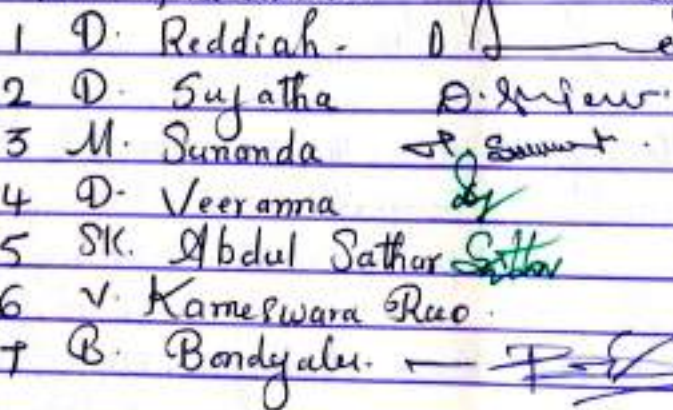 1 D. Reddiah.
2 D. Sujatha
3 M. Sunanda
4 D. Veeranna
5 SK. Abdul Sathar Sattar
6 V. Kameswara Rao.
7 B. Bondyalu.